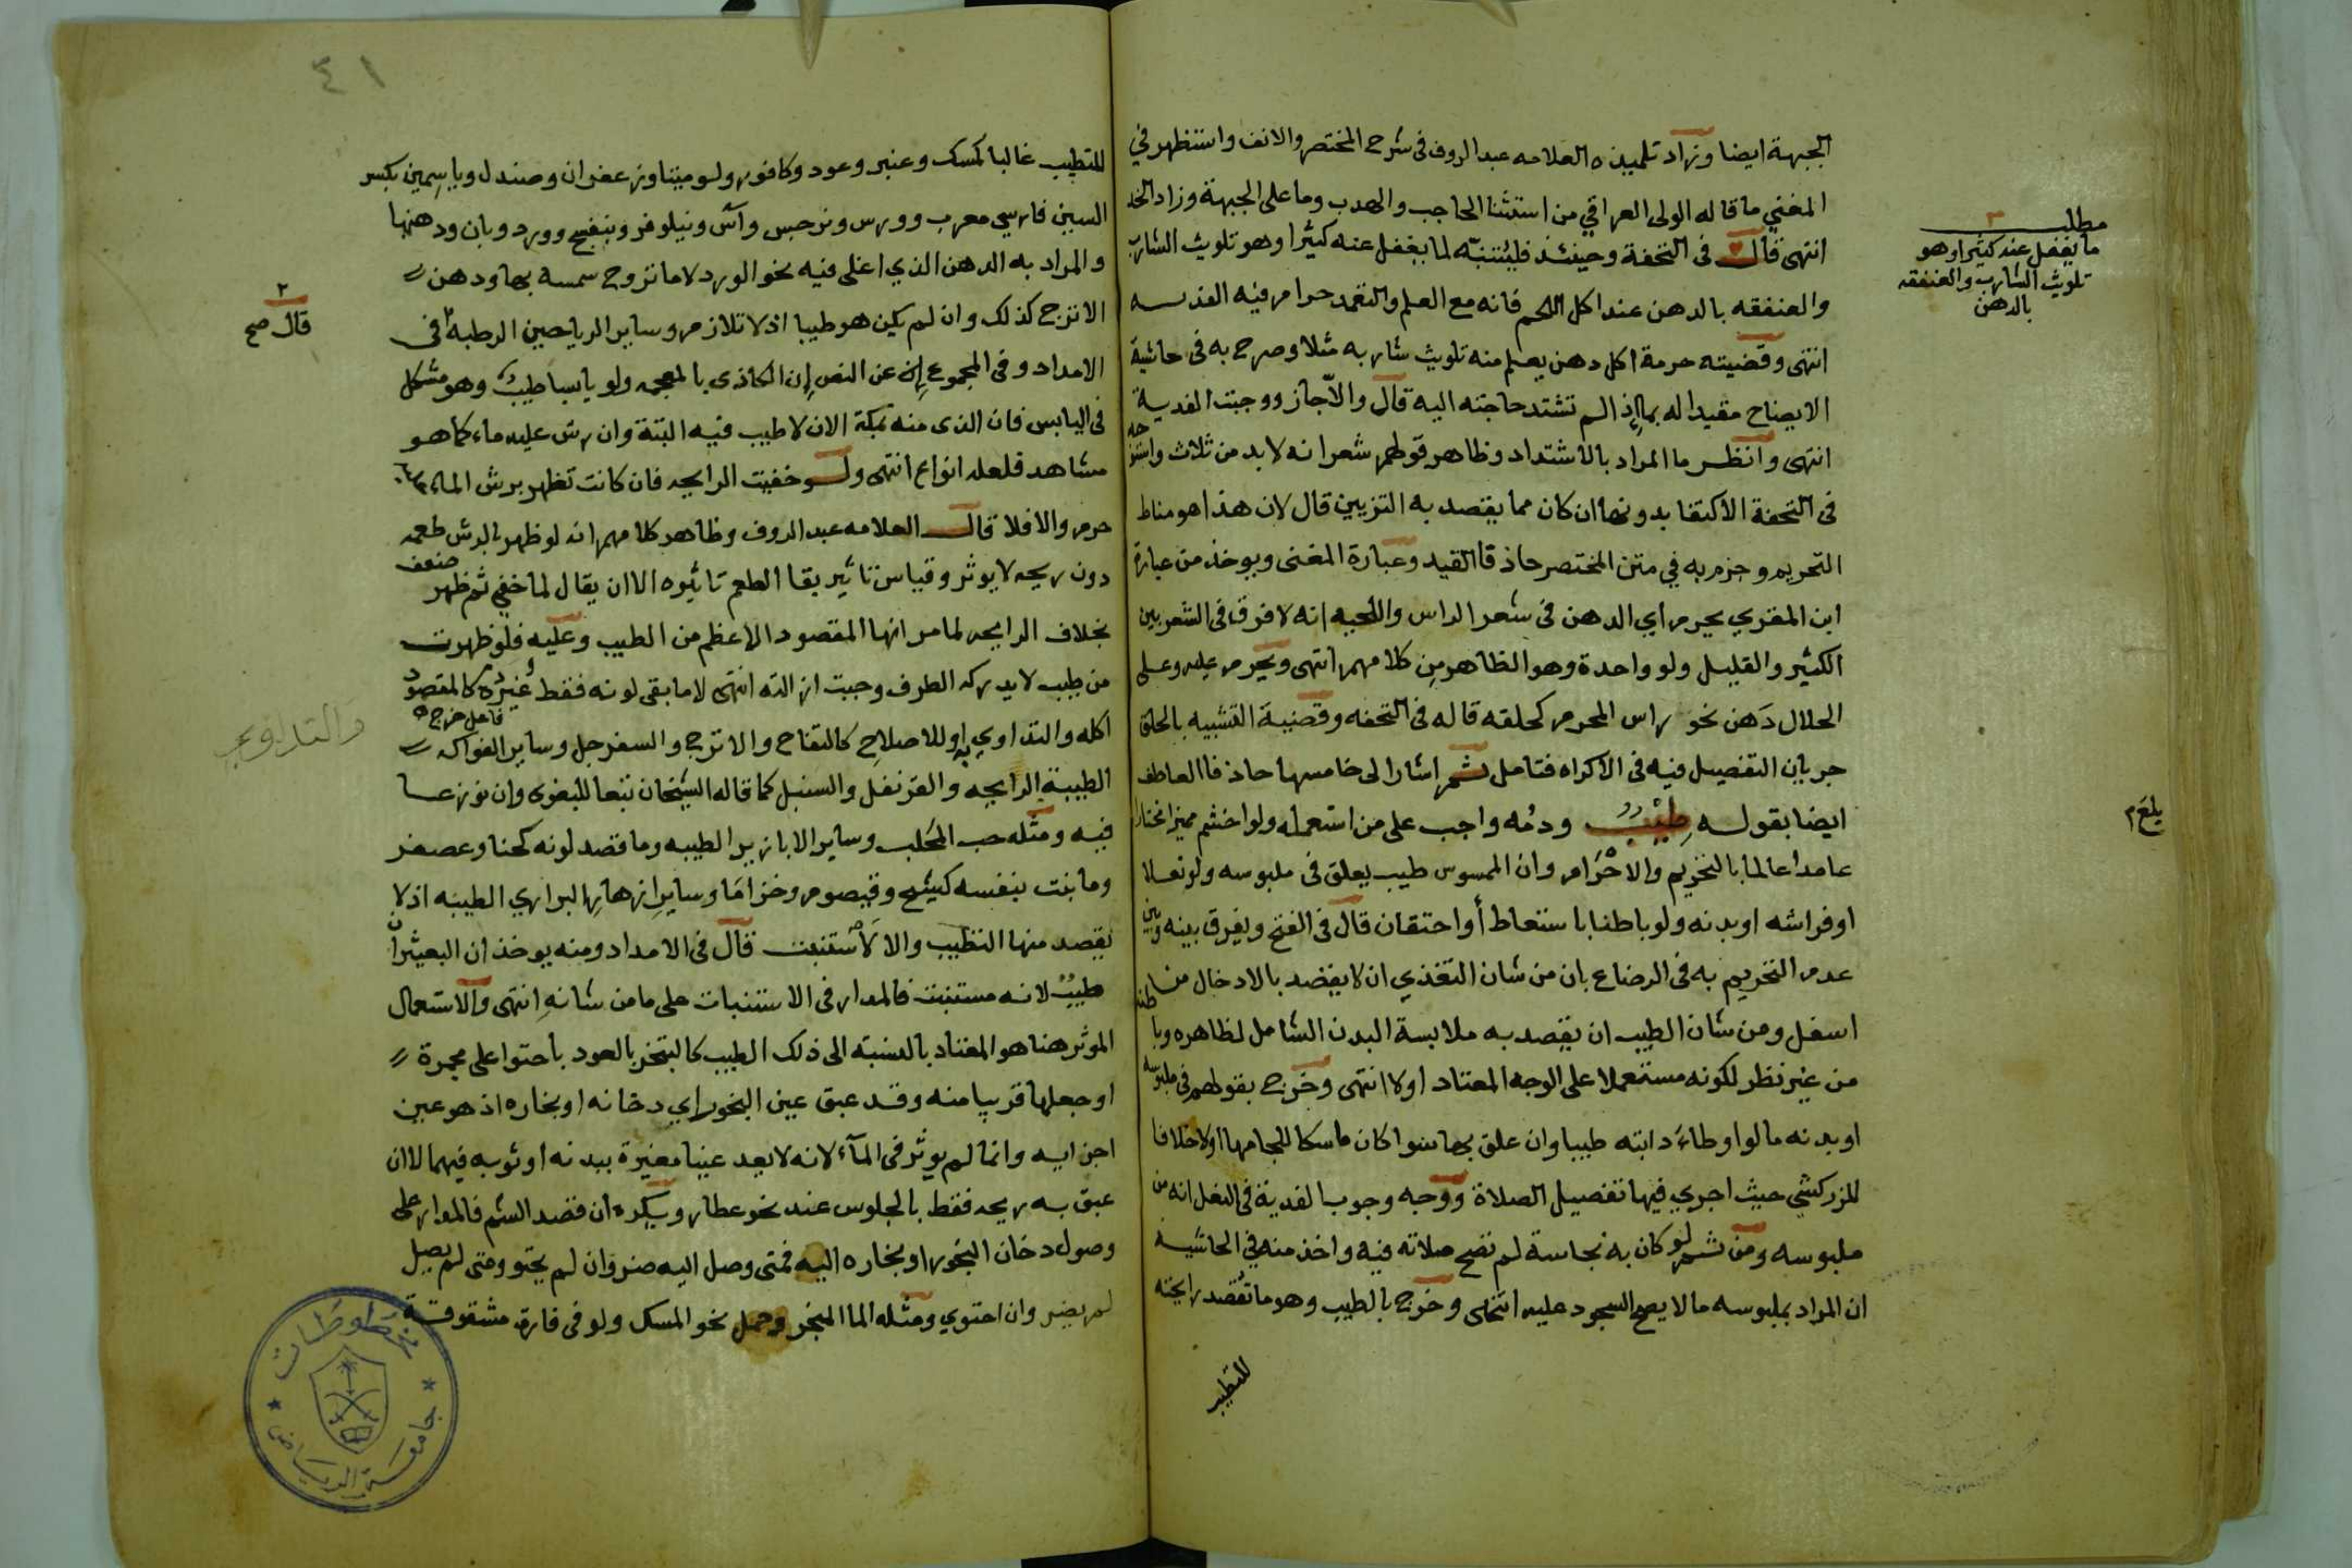 الجبهة ايضا وزاد تلميذه العلامه عبد الروف فى شرح المختصر والانف واستظهر في
المغني ما قاله الولى العراقي من استثنا الحاجب والهدب وما على الجبهة وزاد الخد
انتهى قال في التحفة وحينئذ فليتنبه لما يغفل عنه كثيرا وهو تلويث الشارب
والعنفقه بالدهن عند اكل اللحم فانه مع العلم والتعمد حرام فيه الفديه
انتهى وقضيته حرمة اكل دهن يعلم منه تلويث شاربه مثلا وصرح به فى حاشية
الايضاح مقيدا له بما اذا لم تشتد حاجته اليه قال والا جاز ووجبت الفدية
انتهى وانظر ما المراد بالاشتداد وظاهر قولهم شعر انه لابد من ثلاث واستوجه
فى التحفة الاكتفا بدونها ان كان مما يقصد به التزيين قال لان هذا هو مناط
التحريم وجزم به في متن المختصر حاذفا القيد وعبارة المغنى ويوخذ من عبارة
ابن المقري يحرم اي الدهن فى شعر الراس واللحيه انه لا فرق فى الشعر بين
الكثير والقليل ولو واحدة وهو الظاهر من كلامهم انتهى ويحرم عليه وعلى
الحلال دهن نحو راس المحرم كحلقه قاله فى التحفه وقضية التشبيه بالحلق
جريان التفصيل فيه فى الاكراه فتامل ثم اشار الى خامسها حاذفا العاطف
ايضا بقوله طيب ودمه واجب على من استعمله ولو اخشم مميزا مختارا
عامدا عالما بالتحريم والاحرام وان الممسوس طيب يعلق فى ملبوسه ولو نعلا
او فراشه او بدنه ولو باطنا باستعاط أو احتقان قال فى الفتح ويفرق بينه وبين
عدم التحريم به فى الرضاع بان من شان التغذي ان لا يقصد بالادخال من
اسفل ومن شان الطيب ان يقصد به ملابسة البدن الشامل لظاهره وباطنه
من غير نظر لكونه مستعملا على الوجه المعتاد اولا انتهى وخرج بقولهم فى ملبوسه
او بدنه ما لو اوطاء دابته طيبا وان علق بها سوا كان ماسكا للجامها اولا خلافا
للزركشي حيث اجري فيها تفصيل الصلاة ووجه وجوب الفدية فى النعل انه من
ملبوسه ومن ثم لو كان به نجاسة لم تصح صلاته فيه واخذ منه في الحاشيه
ان المراد بملبوسه ما لا يصح السجود عليه انتهى وخرج بالطيب وهو ما تقصد رايحته
للتطيب
مطلب ٣
ما يغفل عنه كثيرا وهو
تلويث الشارب والعنفقه
بالدهن
بلغ م
٤١
للتطيب غالبا كمسك وعنبر وعود وكافور ولو ميتا وزعفران وصندل وياسمين بكسر
السين فارسي معرب وورس ونرجس وآس ونيلوفر وبنفسج وورد وبان ودهنها
والمراد به الدهن الذي اغلى فيه نحو الورد لا ما تروح سمسمه بها ودهن
الاترج كذلك وان لم يكن هو طيبا اذ لا تلازم وساير الرياحين الرطبه فى
الامداد وفى المجموع عن النص ان الكاذي بالمعجمه ولو يابسا طيب وهو مشكل
فى اليابس فان الذى منه بمكة الان لا طيب فيه البتة وان رش عليه ماء كما هو
مشاهد فلعله انواع انتهى ولو خفيت الرايحه فان كانت تظهر برش الماء
حرم والا فلا قال العلامه عبد الروف وظاهر كلامهم انه لو ظهر بالرش طعمه
دون ريحه لا يوثر وقياس تاثير بقا الطعم تاثيره الا ان يقال لما خفي ثم ظهر ضعف
بخلاف الرايحه لما مر انها المقصود الاعظم من الطيب وعليه فلو ظهرت
من طيب لا يدركه الطرف وجبت ازالته انتهى لا ما بقى لونه فقط كالمقصود
اكله والتداوي به او للاصلاح كالتفاح والاترج والسفرجل وساير الفواكه
الطيبة الرايحه والقرنفل والسنبل كما قاله الشيخان تبعا للبغوى وان نوزعا
فيه ومثله حب المحلب وساير الابازير الطيبه وما قصد لونه كحنا وعصفر
وما ينبت بنفسه كشيح وقيصوم وخزاما وساير ازهار البراري الطيبه اذ لا
يقصد منها التطيب والا لاستنبت قال فى الامداد ومنه يوخذ ان البعيثران
طيب لانه مستنبت فالمدار فى الاستنبات على ما من شانه انتهى والاستعمال
الموثر هنا هو المعتاد بالنسبة الى ذلك الطيب كالتبخر بالعود باحتوا على مجمرة
او جعلها قريبا منه وقد عبق عين البخور اي دخانه او بخاره اذ هو عين
اجزايه وانما لم يوثر فى المآء لانه لا يعد عينا مغيرة ببدنه او ثوبه فيهما لا ان
عبق به ريحه فقط بالجلوس عند نحو عطار ويكره ان قصد الشم فالمدار على
وصول دخان البخور او بخاره اليه فمتى وصل اليه ضر وان لم يحتو ومتى لم يصل
لم يضر وان احتوي ومثله الما المبخر وحمل نحو المسك ولو فى فارة مشقوقة
٢
قال صح
والتداوي
مخطوطات
جامعة الرياض